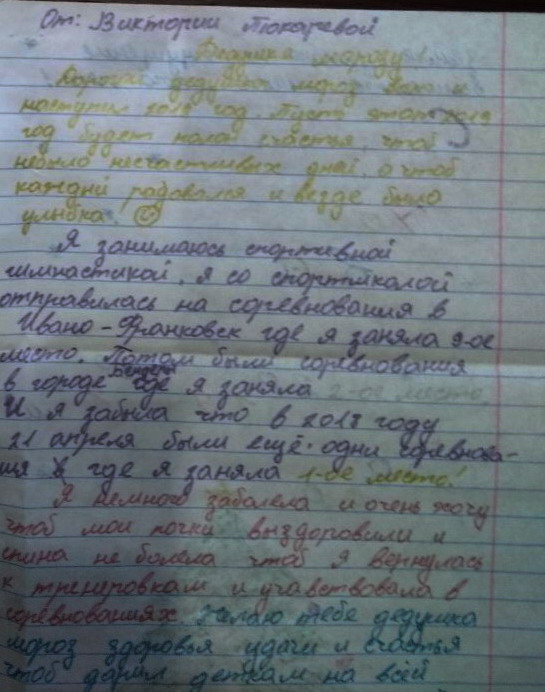 От: Виктории Токаревой
Дедушке морозу!
Дорогой дедушка мороз вот и
наступил 2019 год. Пусть этот 2019
год будет полон счастья, чтоб
небыло несчастливых дней, а чтоб
каждый радовался и везде была
улыбка.
Я занимаюсь спортивной
гимнастикой, я со спортшколой
отправилась на соревнования в
Ивано-Франковск где я заняла 9-ое
место. Потом были соревнования
в городе Бендеры где я заняла 2-ое место.
И я забыла что в 2018 году
21 апреля были ещё одни соревнова-
ия где я заняла 1-ое место!
Я немного заболела и очень хочу
чтоб мои почки выздоровили и
спина не болела чтоб я вернулась
к тренеровкам и учавствовала в
соревнованиях. Желаю тебе дедушка
мороз здоровья удачи и счастья
чтоб дарил деткам на всей